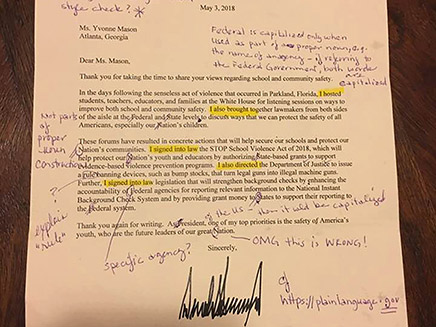 style check? *
May 3, 2018
Ms. Yvonne Mason
Atlanta, Georgia
Federal is capitalized only when
used as part of a proper noun, e.g.
the name of an agency - if referring to
the Federal Government, both words
are capitalized
Dear Ms. Mason,
Thank you for taking the time to share your views regarding school and community safety.
In the days following the senseless act of violence that occurred in Parkland, Florida, I hosted
students, teachers, educators, and families at the White House for listening sessions on ways to
improve both school and community safety. I also brought together lawmakers from both sides
of the aisle at the Federal and State levels to discuss ways that we can protect the safety of all
Americans, especially our Nation's children.
Not parts
of
proper
noun
construction
These forums resulted in concrete actions that will help secure our schools and protect our
Nation's communities. I signed into law the STOP School Violence Act of 2018, which will
help protect our Nation's youth and educators by authorizing State-based grants to support
evidence-based violence prevention programs. I also directed the Department of Justice to issue
a rule banning devices, such as bump stocks, that turn legal guns into illegal machine guns.
Further, I signed into law legislation that will strengthen background checks by enhancing the
accountability of Federal agencies for reporting relevant information to the National Instant
Background Check System and by providing grant money to States to support their reporting to
the Federal system.
explain
"rule"
of the US - then it will be capitalized
Thank you again for writing. As President, one of my top priorities is the safety of America's
youth, who are the future leaders of our great Nation.
Sincerely,
OMG this is WRONG!
specific agency?
cf
https://plainlanguage.gov